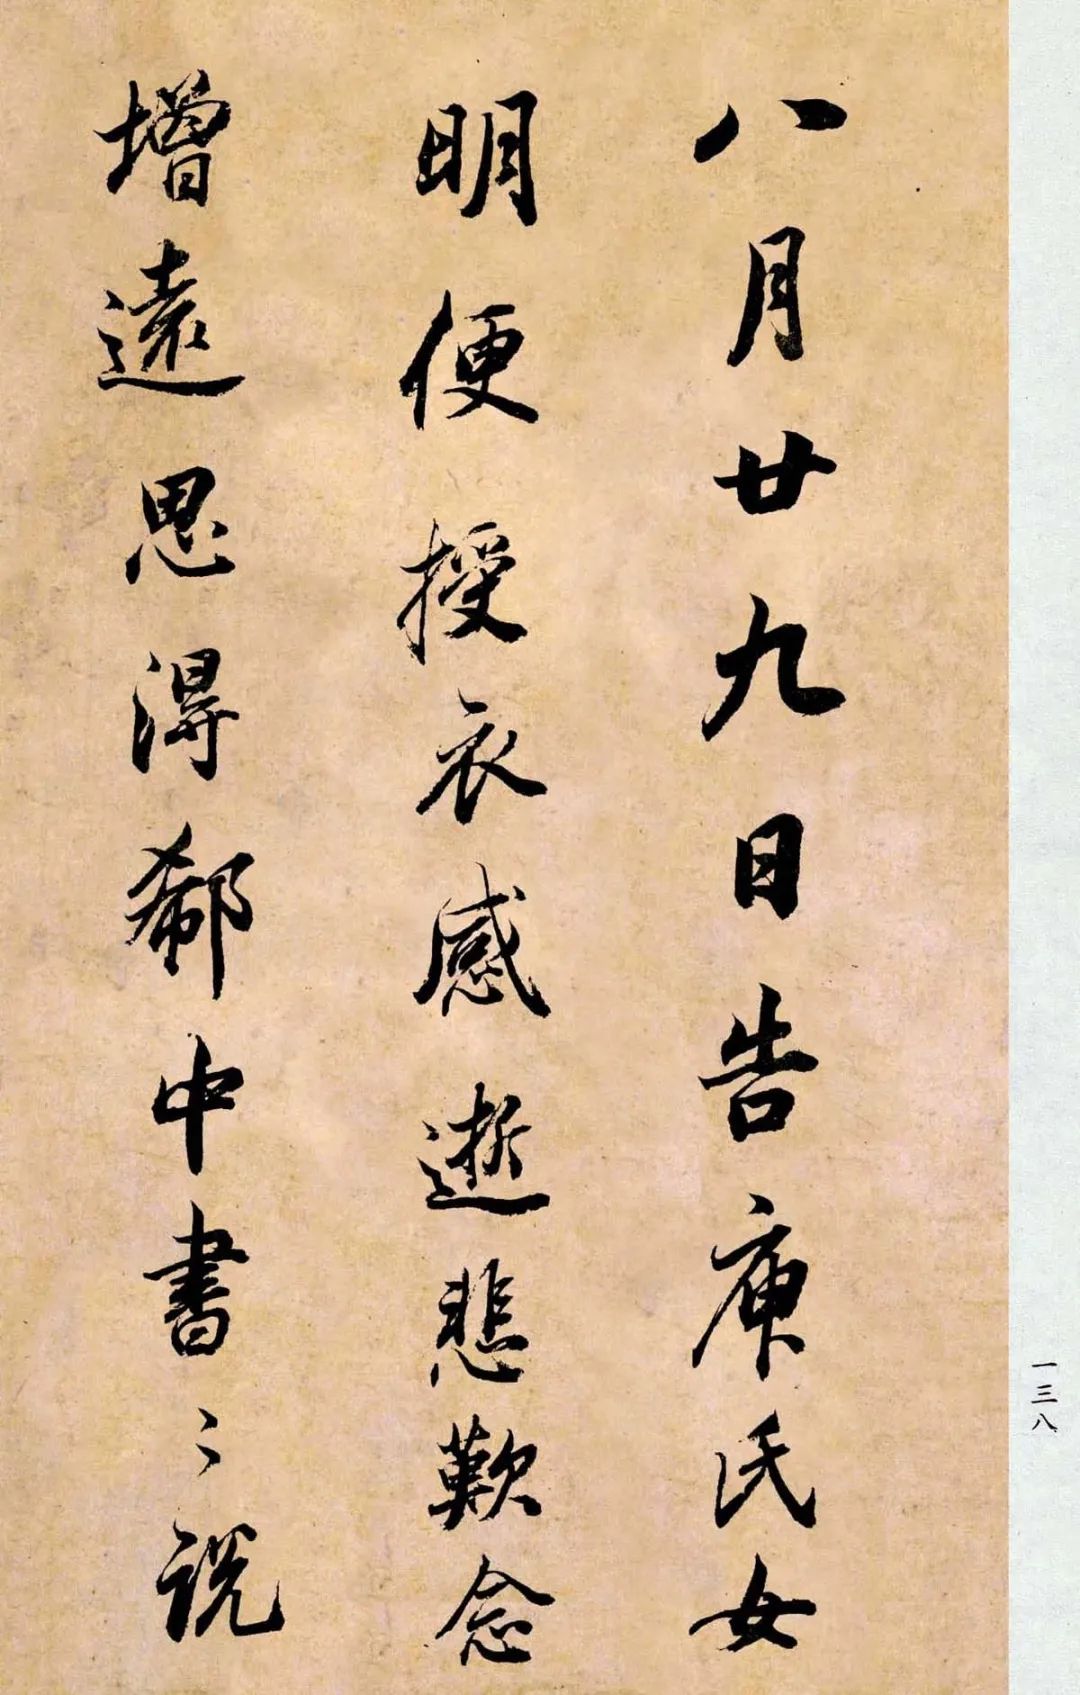 八月廿九日告庾氏女
明便授衣感逝悲歎念
增遠思得郗中書〻說
一三八